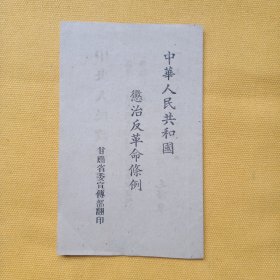 中華人民共和國
懲治反革命條例
甘肅省委宣傳部翻印